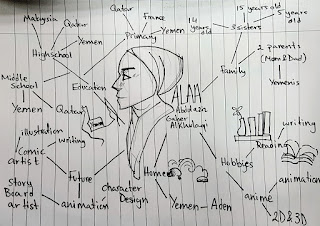 Malaysia
Qatar
Highschool
Yemen
Qatar
France
Primary
Yemen
14
years
old
15 years old
5 years
old
3 sisters
Family
2 parents
(Mom & Dad)
Yemenis
Middle
School
Education
Yemen
Qatar
ALAA
Gaber
Hobbies
Reading
writing
anime
animation
2D & 3D
Home
Yemen - Aden
illustration
writing
Comic
artist
Future
Story
Board
artist
animation
Character
Design